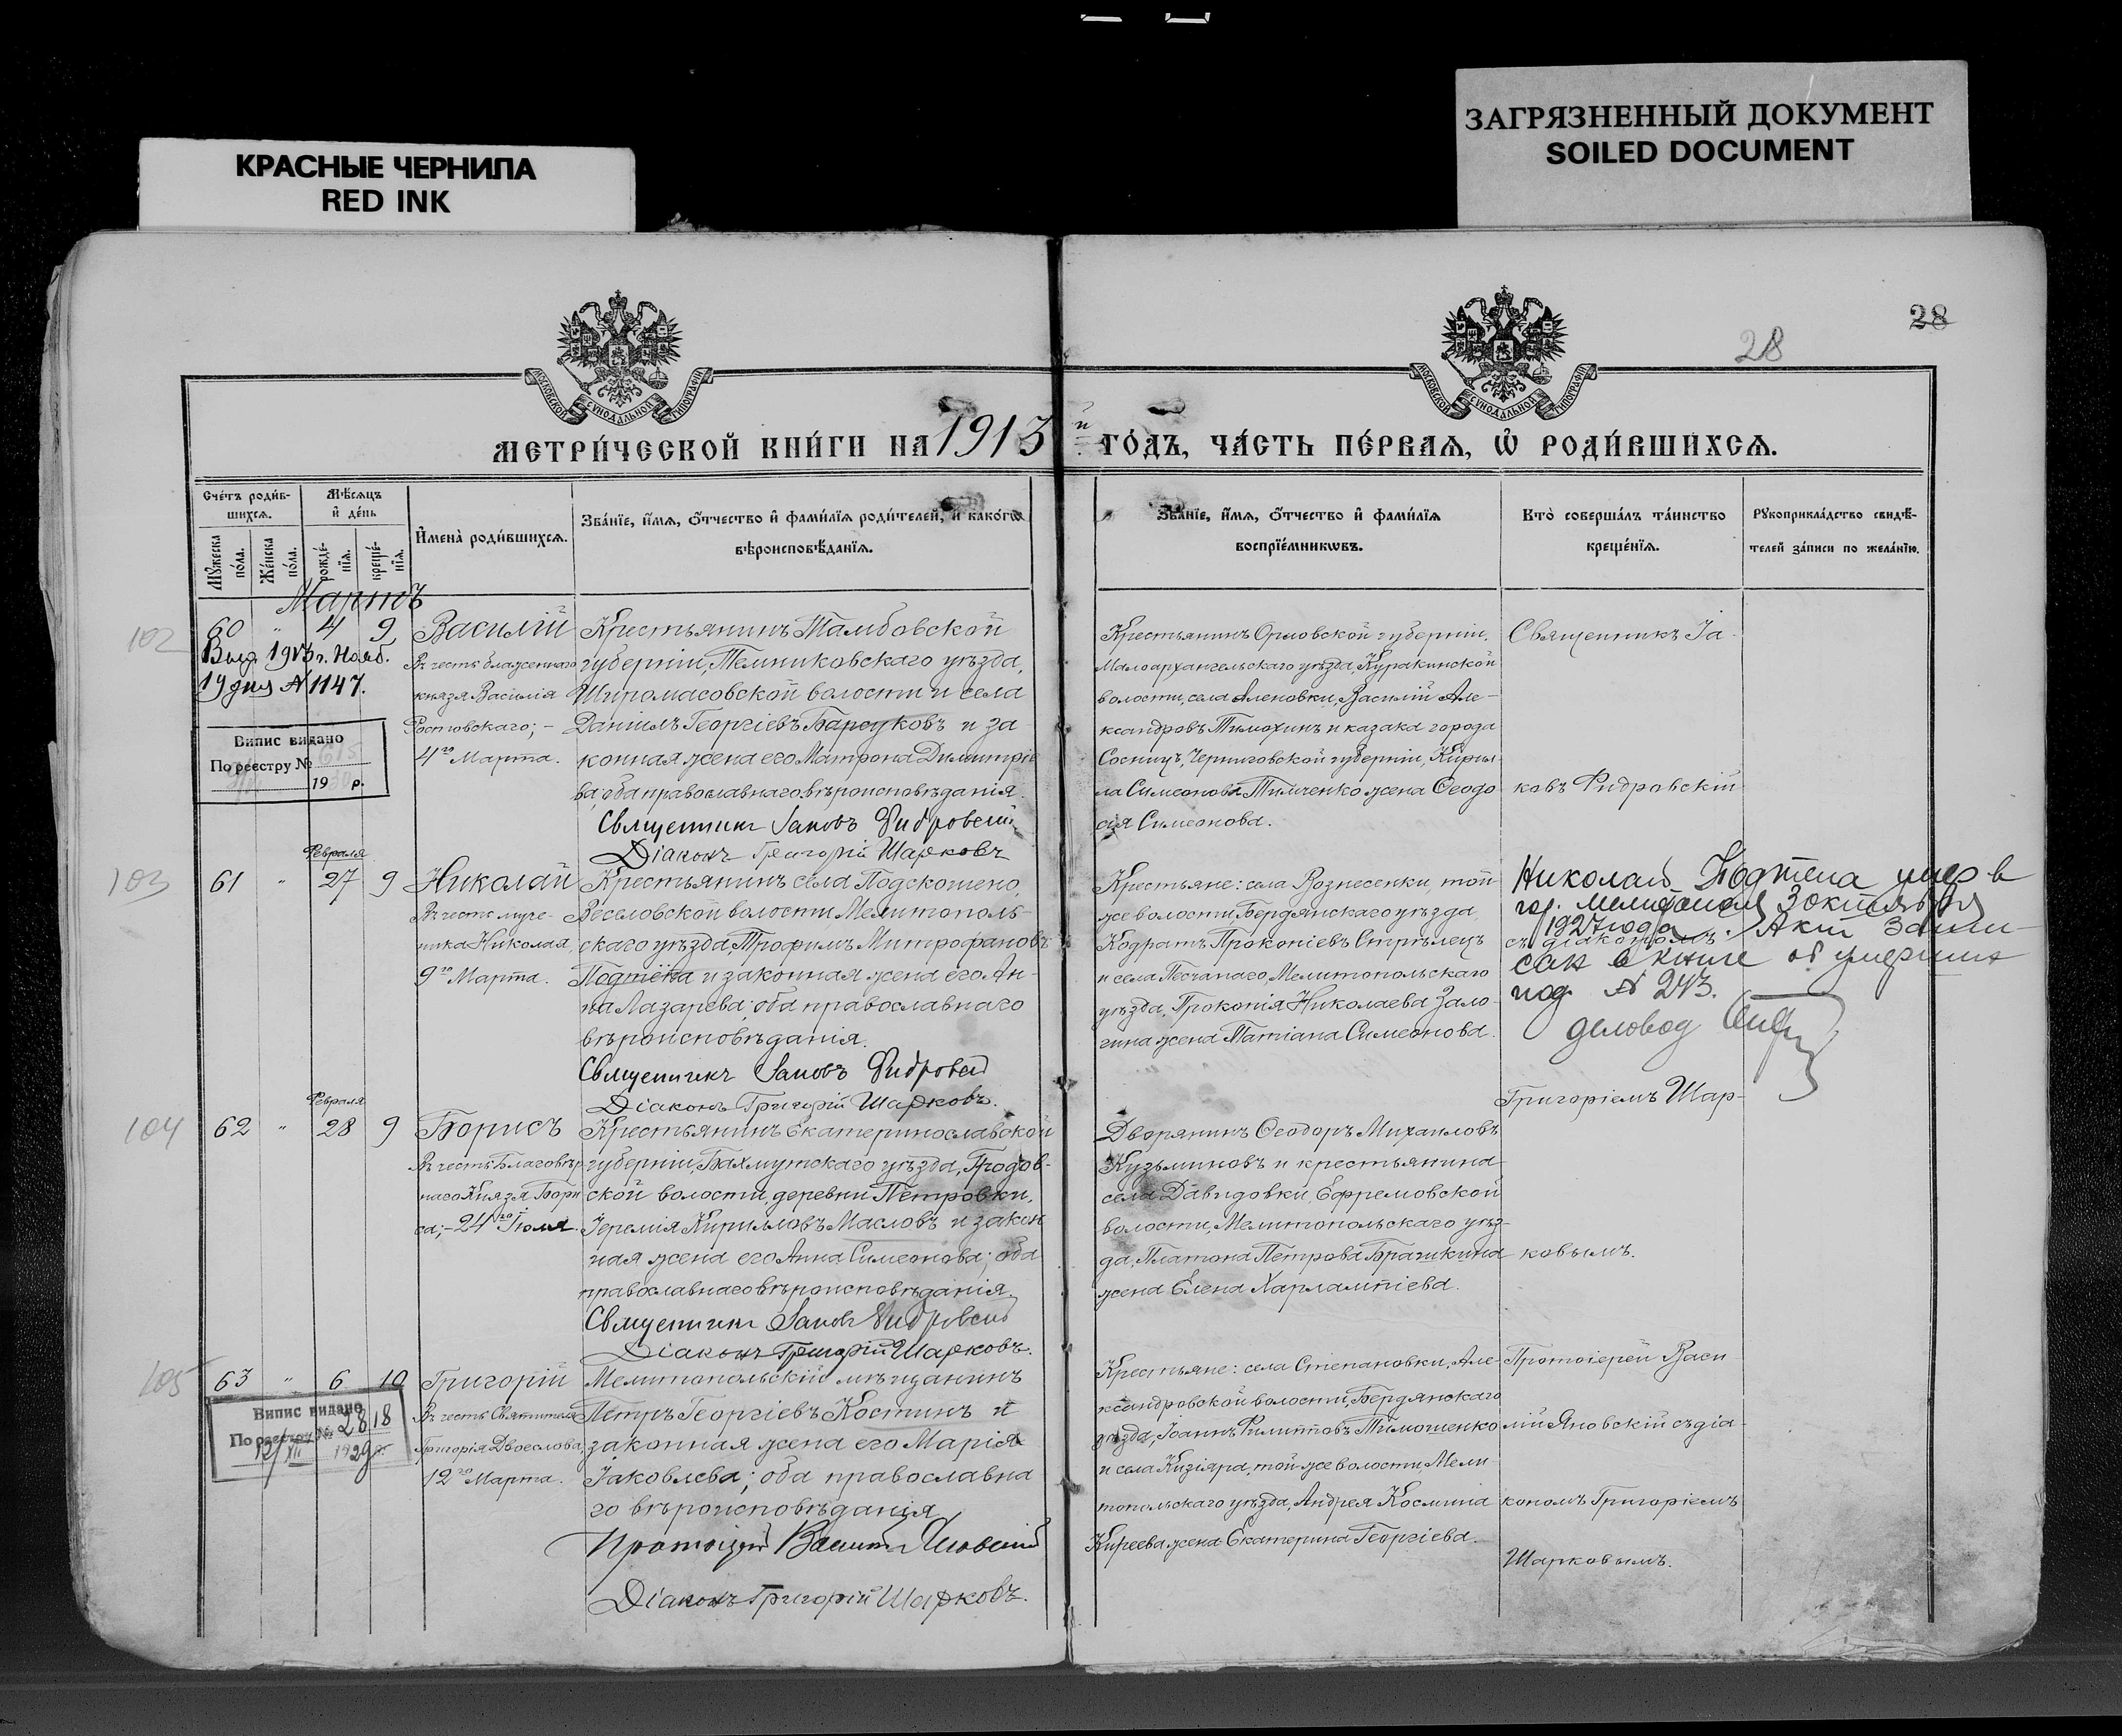 ЗАГРЯЗНЕННЫЙ ДОКУМЕНТ
SOILED DOCUMENT
КРАСНЫЕ ЧЕРНИЛА
RED INK
28
28
МОСКОВСКОЙ СУНОДАЛЬНОЙ ТИПОГРАФІИ
МОСКОВСКОЙ СУНОДАЛЬНОЙ ТИПОГРАФІИ
МЕТРИ́ЧЕСКОЙ КНИ́ГИ НА 1913 й ГО́ДЪ, ЧА́СТЬ ПЕ́РВАѦ, Ѽ РОДИ́ВШИХСѦ.
Сче́тъ роди́в-
шихсѧ.
Мѣ́сѧцъ
и҆ де́нь
Мꙋ́жеска
по́ла.
Же́нска
по́ла.
рожде́-
нїѧ.
креще́-
нїѧ.
И҆мена̀ роди́вшихсѧ.
Зва́нїе, и҆́мѧ, ѻ҆́тчество и҆ фами́лїѧ роди́телей, и҆ како́гѡ
вѣроисповѣ́данїѧ.
Зва́нїе, и҆́мѧ, ѻ҆́тчество и҆ фами́лїѧ
воспрїе́мникѡвъ.
Кто̀ соверша́лъ та́инство
креще́нїѧ.
Рꙋкоприкла́дство свидѣ́-
телей за́писи по жела́нїю.
Мартъ
102
60 " 4 9
Выд. 1913 г. Нояб.
19 дня № 1147.
Випис видано
По реєстру № 615
1930 р.
Василій
Въ честь блаженнаго
князя Василія
Ростовскаго; –
4го Марта.
Крестьянинъ Тамбовской
губерніи, Темниковскаго уѣзда,
Широмасовской волости и села
Даніилъ Георгіевъ Барсуковъ и за-
конная жена его Матрона Димитріе
ва, оба православнаго вѣроисповѣданія.
Священникъ Іаковъ Фидровскій
Діаконъ Григорій Шарковъ
Крестьянинъ Орловской губерніи,
Малоархангельскаго уѣзда, Куракинской
волости, села Аленовки, Василій Але-
ксандровъ Тимохинъ и казака города
Сосницъ, Черниговской губерніи, Кирил-
ла Симеонова Тимченко жена Ѳеодо
сія Симеонова.
Священникъ Іа-
ковъ Фидровскій
103
Февраля
61 " 27 9
Николай
Въ честь муче-
ника Николая,
9го Марта.
Крестьянинъ села Подскошено,
Веселовской волости, Мелитополь-
скаго уѣзда, Трофимъ Митрофановъ
Подтёпа и законная жена его Ан-
на Лазарева; оба православнаго
вѣроисповѣданія.
Священникъ Іаковъ Фидровскій
Діаконъ Григорій Шарковъ.
Крестьяне: села Вознесенки, той
же волости, Бердянскаго уѣзда,
Кодратъ Прокопіевъ Стрѣлецъ
и села Песчанаго, Мелитопольскаго
уѣзда, Прокопія Николаева Зало-
гина жена Татіана Симеонова.
Николай Подтепа умер в
гор. Мелитополя 3 октября
1927 года. Акт запи-
съ діакономъ
сан в книге об умерших
под № 243.
деловод
Григоріемъ Шар-
104
Февраля
62 " 28 9
Борисъ
Въ честь Благовѣр-
наго Князя Бори
са; – 24го Іюля.
Крестьянинъ Екатеринославской
губерніи, Бахмутскаго уѣзда, Гродов-
ской волости, деревни Петровки,
Іеремія Кирилловъ Масловъ и закон
ная жена его Анна Симеонова; оба
православнаго вѣроисповѣданія.
Священникъ Іаковъ Фидровскій
Діаконъ Григорій Шарковъ.
Дворянинъ Ѳеодоръ Михаиловъ
Кузьминовъ и крестьянина
села Давидовки, Ефремовской
волости, Мелитопольскаго уѣз-
да, Платона Петрова Брашкина
жена Елена Харлампіева.
ковымъ.
105
63 " 6 10
Випис видано
По реєстру № 2818
12/XII 1929 р.
Григорій
Въ честь Святителя
Григорія Двоеслова;
12го Марта.
Мелитопольскій мѣщанинъ
Петръ Георгіевъ Костинъ и
законная жена его Марія
Іаковлева; оба православна
го вѣроисповѣданія
Протоіерей Василій Яновскій
Діаконъ Григорій Шарковъ.
Крестьяне: села Степановки, Але-
ксандровской волости, Бердянскаго
уѣзда, Іоаннъ Филипповъ Тимошенко
и села Кизіяра, той же волости, Мели
топольскаго уѣзда, Андрея Космина
Киреева жена Екатерина Георгіева.
Протоіерей Васи
лій Яновскій съ діа-
кономъ Григоріемъ
Шарковымъ.